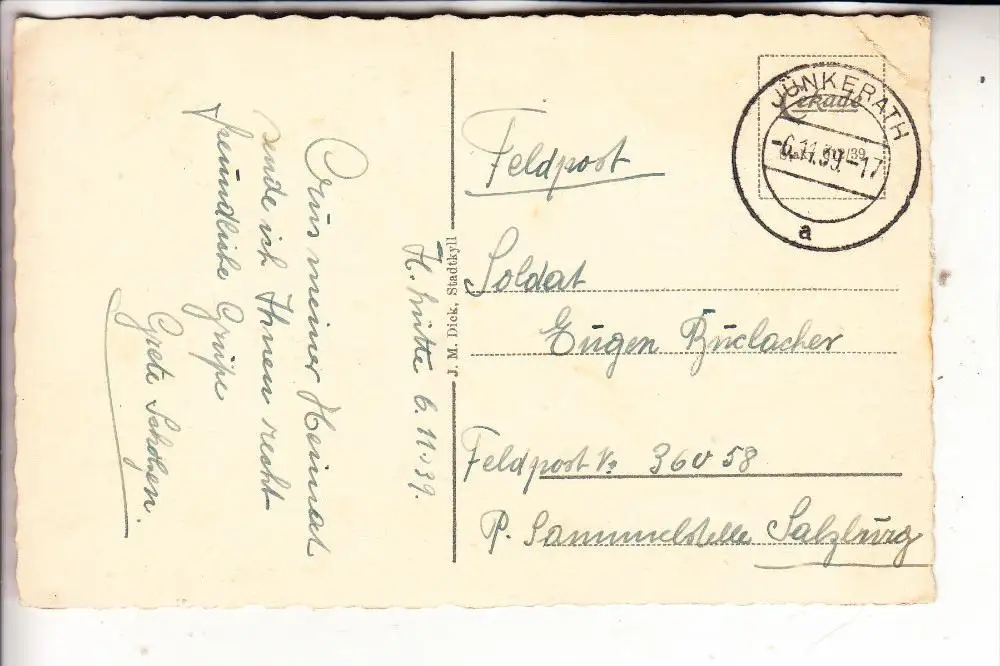 H. hütte 6.11.39.
Aus meiner Heimat
sende ich Ihnen recht
freundliche Grüße
Grete Scholzen.
J. M. Dick, Stadtkyll
JÜNKERATH
-6.11.39.-17
a
Cekade
Feldpost
Soldat
Eugen Buclacher
Feldpost No 36058
P. Sammelstelle Salzburg